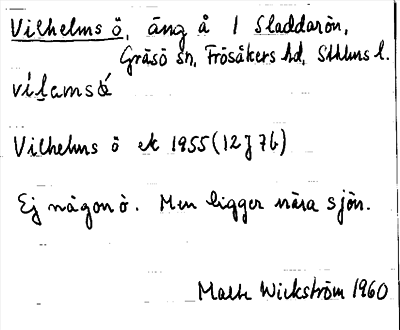 Vilhelms ö, äng å 1 Sladdarön,
Gräsö sn, Frösåkers hd, Sthlms l.
Vilhelms ö ek 1955 (12J 7b)
Ej någon ö. Men ligger nära sjön.
Wickström 1960